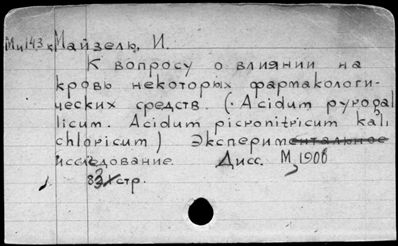 Мц143к Майзель, И.
К вопросу о влиянии на
кровь некоторых фармакологи-
ческих средств. (Acidum pyrogal
licum. Acidum picronitricum kali
chloricum) Экспериментальное
исследование. Дисс. М, 1900
стр.